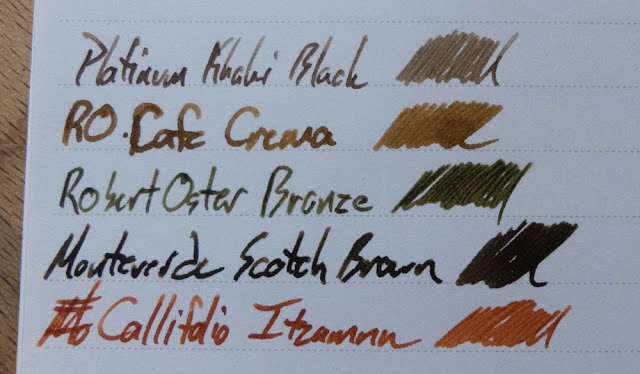 Platinum Khaki Black
RO. Cafe Crema
Robert Oster Bronze
Monteverde Scotch Brown
Callifolio Itzamna